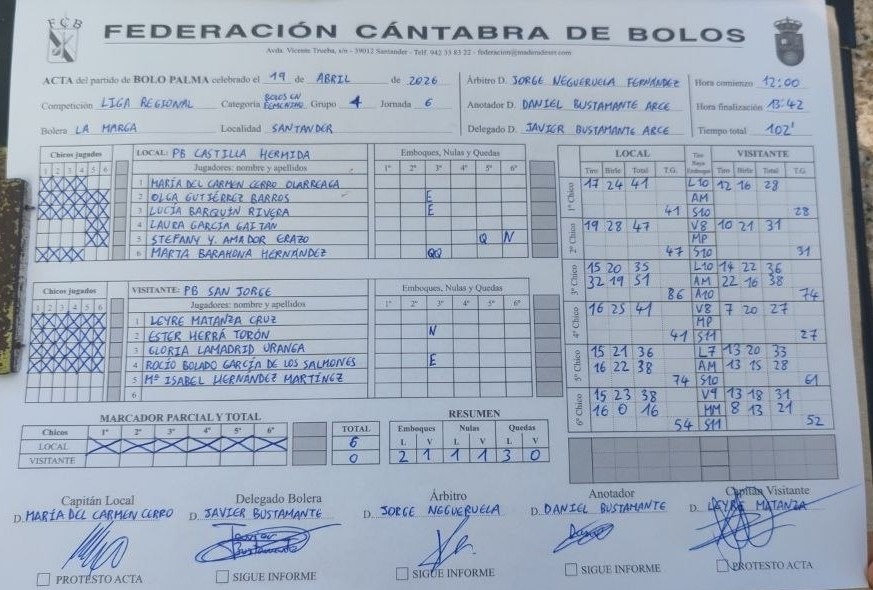 FCB
FEDERACIÓN CÁNTABRA DE BOLOS
Avda. Vicente Trueba, s/n - 39012 Santander - Telf. 942 33 83 22 - federacion@maderadeser.com
ACTA del partido de BOLO PALMA celebrado el 19 de ABRIL de 2026
Árbitro D. JORGE NEGUERUELA FERNÁNDEZ
Hora comienzo 12:00
Competición LIGA REGIONAL Categoría BOLOS EN FEMENINO Grupo 4 Jornada 6
Anotador D. DANIEL BUSTAMANTE ARCE
Hora finalización 13:42
Bolera LA MARGA Localidad SANTANDER
Delegado D. JAVIER BUSTAMANTE ARCE
Tiempo total 102'
Chicos jugados
1 2 3 4 5 6
LOCAL: PB CASTILLA HERMIDA
Emboques, Nulas y Quedas
Jugadores: nombre y apellidos
1º 2º 3º 4º 5º 6º
1 MARÍA DEL CARMEN CERRO OLARREAGA
2 OLGA GUTIÉRREZ BARROS E
3 LUCÍA BARQUÍN RIVERA E
4 LAURA GARCÍA GAITAN
5 STEFANY Y. AMADOR ERAZO Q N
6 MARTA BARAHONA HERNÁNDEZ QQ
Chicos jugados
1 2 3 4 5 6
VISITANTE: PB SAN JORGE
Emboques, Nulas y Quedas
Jugadores: nombre y apellidos
1º 2º 3º 4º 5º 6º
1 LEYRE MATANZA CRUZ
2 ESTER HERRÁ TORÓN N
3 GLORIA LAMADRID URANGA
4 ROCÍO BOLADO GARCÍA DE LOS SALMONES E
5 Mª ISABEL HERNÁNDEZ MARTÍNEZ
6
LOCAL
VISITANTE
Tiro Birle Total T.G.
Tiro Raya Emboque
Tiro Birle Total T.G.
1º Chico
17 24 41 L10 12 16 28
AM
41 S10 28
2º Chico
19 28 47 V8 10 21 31
MP
47 S10 31
3º Chico
15 20 35 L10 14 22 36
32 19 51 AM 22 16 38
86 A10 74
4º Chico
16 25 41 V8 7 20 27
MP
41 S11 27
5º Chico
15 21 36 L7 13 20 33
16 22 38 AM 13 15 28
74 S10 61
6º Chico
15 23 38 V9 13 18 31
16 0 16 MM 8 13 21
54 S11 52
MARCADOR PARCIAL Y TOTAL
Chicos 1º 2º 3º 4º 5º 6º TOTAL
LOCAL 6
VISITANTE 0
RESUMEN
Emboques Nulas Quedas
L V L V L V
2 1 1 1 3 0
Capitán Local
D. MARÍA DEL CARMEN CERRO
PROTESTO ACTA
Delegado Bolera
D. JAVIER BUSTAMANTE
Javier Bustamante
SIGUE INFORME
Árbitro
D. JORGE NEGUERUELA
SIGUE INFORME
Anotador
D. DANIEL BUSTAMANTE
SIGUE INFORME
Capitán Visitante
D. LEYRE MATANZA
PROTESTO ACTA